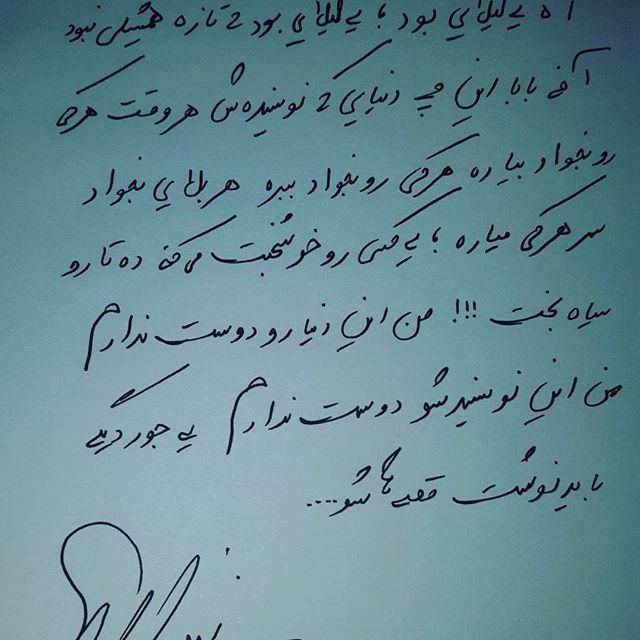 بود با بود تازه نبود
آخه بابا این چه دنیایی که نویسندش هر وقت هرکی
رو بخواد بیاره هرکی رو بخواد ببره هر بلایی بخواد
سر هرکی میاره با یکی رو خوشبخت می‌کنه ده تا رو
سیاه بخت !!! من این دنیا رو دوست ندارم
من این نویسندشو دوست ندارم یه جور دیگه
باید نوشت قصه هاشو....